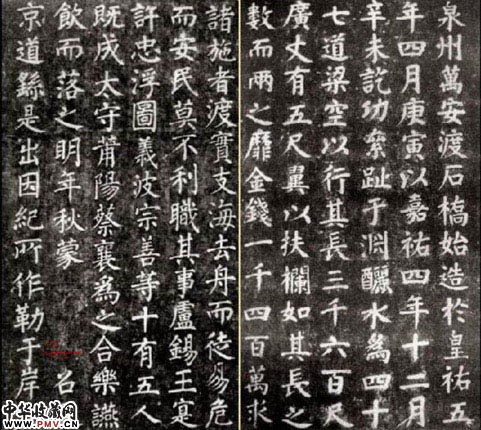 泉州萬安渡石橋始造於皇祐五
年四月庚寅以嘉祐四年十二月
辛未訖功絫趾于渊釃水為四十
七道梁空以行其長三千六百尺
廣丈有五尺翼以扶欄如其長之
數而兩之靡金錢一千四百萬求
諸施者渡實支海去舟而徒易危
而安民莫不利職其事盧錫王寔
許忠浮圖義波宗善等十有五人
既成太守莆陽蔡襄為之合樂讌
飲而落之明年秋蒙 召
京道繇是出因紀所作勒于岸
中华收藏网
WWW.PMV.CN